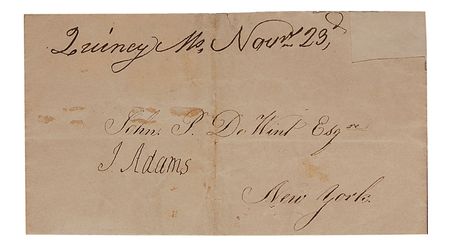 Quincy Ms, Novr 23d,
John P. De Wint Esqre
J Adams
New York.